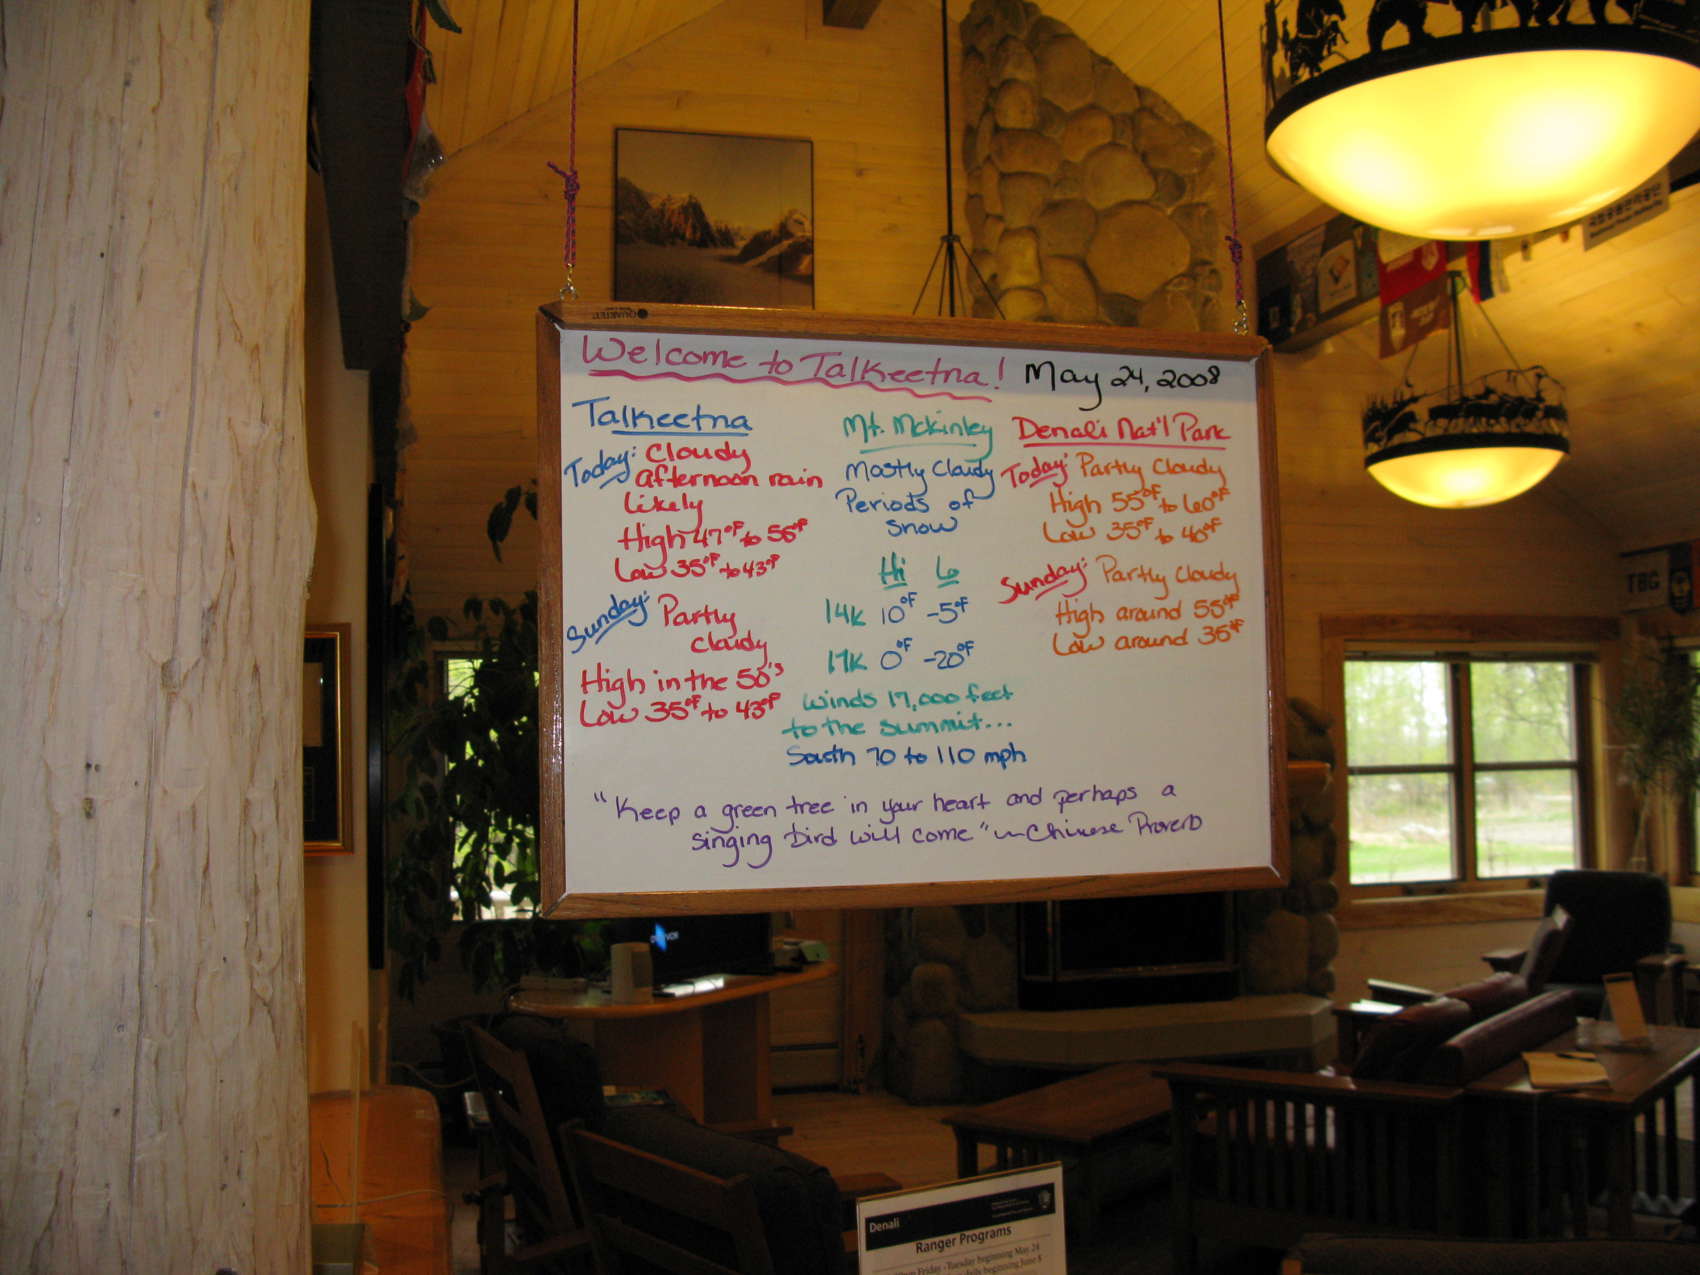 Welcome to Talkeetna! May 24, 2008
Talkeetna
Today: Cloudy
afternoon rain
likely
High 47°F to 56°F
Low 35°F to 43°F
Sunday: Partly
cloudy
High in the 50's
Low 35°F to 43°F
Mt. McKinley
Mostly Cloudy
Periods of
Snow
Hi Lo
14K 10°F -5°F
17K 0°F -20°F
Winds 17,000 feet
to the summit...
South 70 to 110 mph
Denali Nat'l Park
Today: Partly Cloudy
High 55°F to 60°F
Low 35°F to 40°F
Sunday: Partly Cloudy
High around 55°F
Low around 35°F
"Keep a green tree in your heart and perhaps a
singing bird will come" ~ Chinese Proverb
QUARTET
TBG
Denali
Ranger Programs
Friday - Tuesday beginning May 24
beginning June 8